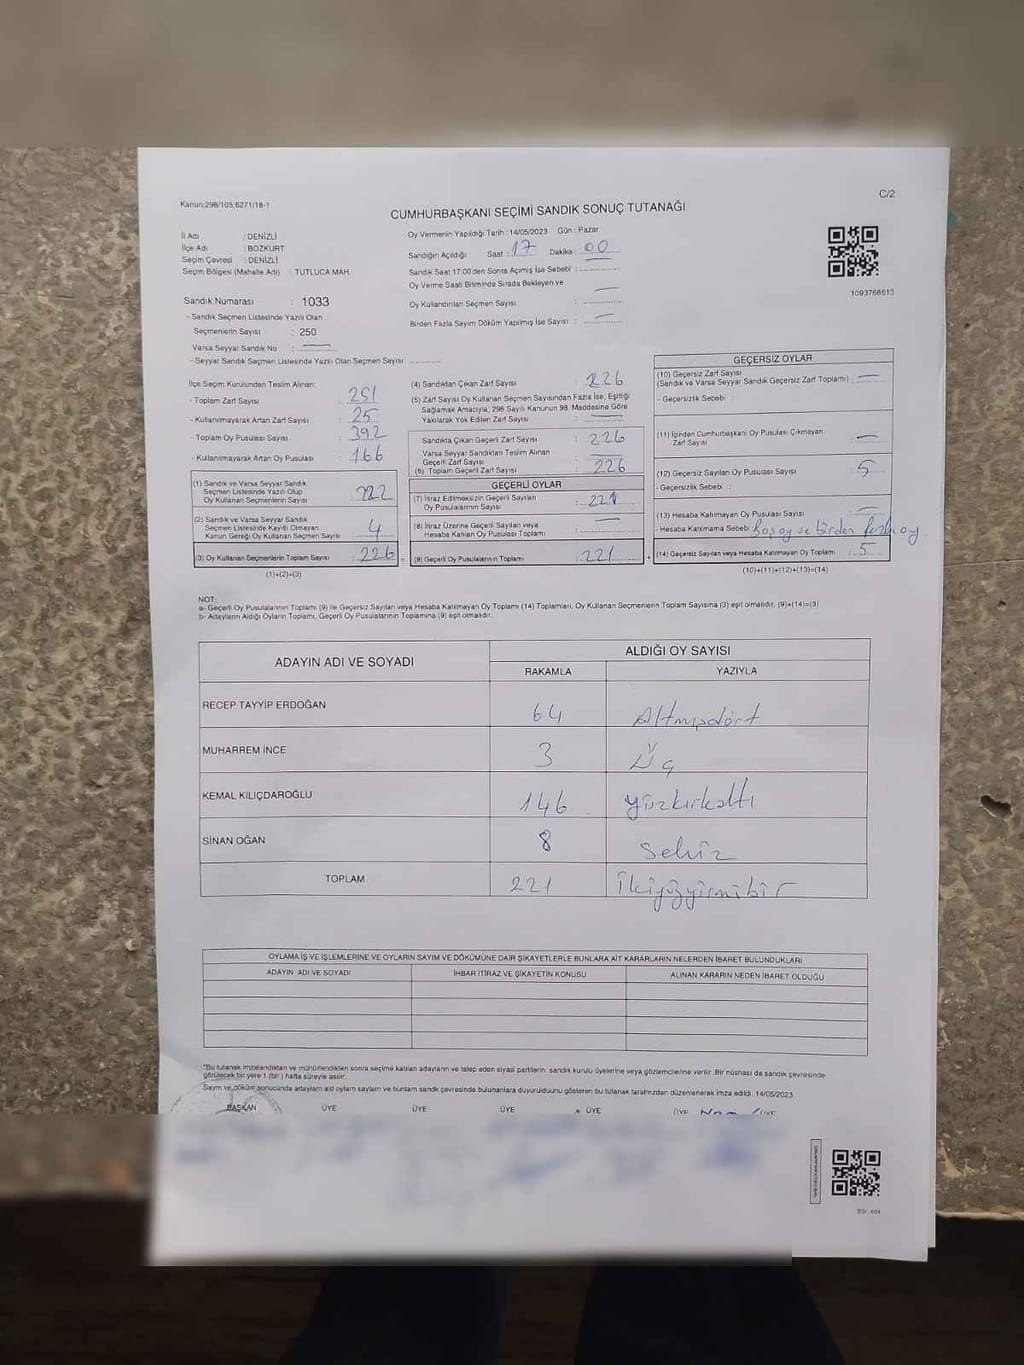 Kanun;298/105,6271/18-1
C/2
CUMHURBAŞKANI SEÇİMİ SANDIK SONUÇ TUTANAĞI
İl Adı : DENİZLİ
İlçe Adı : BOZKURT
Seçim Çevresi : DENİZLİ
Seçim Bölgesi (Mahalle Adı) : TUTLUCA MAH.
Sandık Numarası : 1033
- Sandık Seçmen Listesinde Yazılı Olan
Seçmenlerin Sayısı : 250
Varsa Seyyar Sandık No : —
- Seyyar Sandık Seçmen Listesinde Yazılı Olan Seçmen Sayısı ..........
Oy Vermenin Yapıldığı Tarih : 14/05/2023 Gün : Pazar
Sandığın Açıldığı Saat : 17 Dakika : 00
Sandık Saat 17:00'den Sonra Açılmış İse Sebebi : ..............
Oy Verme Saati Bitiminde Sırada Bekleyen ve
Oy Kullandırılan Seçmen Sayısı : —
Birden Fazla Sayım Döküm Yapılmış İse Sayısı : —
1093768613
İlçe Seçim Kurulundan Teslim Alınan:
- Toplam Zarf Sayısı : 251
- Kullanılmayarak Artan Zarf Sayısı : 25
- Toplam Oy Pusulası Sayısı : 392
- Kullanılmayarak Artan Oy Pusulası : 166
(1) Sandık ve Varsa Seyyar Sandık
Seçmen Listesinde Yazılı Olup
Oy Kullanan Seçmenlerin Sayısı : 222
(2) Sandık ve Varsa Seyyar Sandık
Seçmen Listesinde Kayıtlı Olmayan
Kanun Gereği Oy Kullanan Seçmen Sayısı : 4
(3) Oy Kullanan Seçmenlerin Toplam Sayısı : 226
(1)+(2)=(3)
(4) Sandıktan Çıkan Zarf Sayısı : 226
(5) Zarf Sayısı Oy Kullanan Seçmen Sayısından Fazla İse, Eşitliği
Sağlamak Amacıyla; 298 Sayılı Kanunun 98. Maddesine Göre
Yakılarak Yok Edilen Zarf Sayısı : —
Sandıkta Çıkan Geçerli Zarf Sayısı : 226
Varsa Seyyar Sandıktan Teslim Alınan
Geçerli Zarf Sayısı : —
(6) Toplam Geçerli Zarf Sayısı : 226
GEÇERLİ OYLAR
(7) İtiraz Edilmeksizin Geçerli Sayılan
Oy Pusulalarının Sayısı : 221
(8) İtiraz Üzerine Geçerli Sayılan veya
Hesaba Katılan Oy Pusulası Toplamı : —
(9) Geçerli Oy Pusulalarının Toplamı : 221
GEÇERSİZ OYLAR
(10) Geçersiz Zarf Sayısı
(Sandık ve Varsa Seyyar Sandık Geçersiz Zarf Toplamı) : —
- Geçersizlik Sebebi :
(11) İçinden Cumhurbaşkanı Oy Pusulası Çıkmayan
Zarf Sayısı : —
(12) Geçersiz Sayılan Oy Pusulası Sayısı : 5
- Geçersizlik Sebebi :
(13) Hesaba Katılmayan Oy Pusulası Sayısı : —
- Hesaba Katılmama Sebebi : Boş oy ve birden fazla oy
(14) Geçersiz Sayılan veya Hesaba Katılmayan Oy Toplamı : 5
(10)+(11)+(12)+(13)=(14)
NOT:
a- Geçerli Oy Pusulalarının Toplamı (9) ile Geçersiz Sayılan veya Hesaba Katılmayan Oy Toplamı (14) Toplamları, Oy Kullanan Seçmenlerin Toplam Sayısına (3) eşit olmalıdır. (9)+(14)=(3)
b- Adayların Aldığı Oyların Toplamı, Geçerli Oy Pusulalarının Toplamına (9) eşit olmalıdır.
ADAYIN ADI VE SOYADI
ALDIĞI OY SAYISI
RAKAMLA YAZIYLA
RECEP TAYYİP ERDOĞAN 64 Altmışdört
MUHARREM İNCE 3 Üç
KEMAL KILIÇDAROĞLU 146 yüzkırkaltı
SİNAN OĞAN 8 Sekiz
TOPLAM 221 İkiyüzyirmibir
OYLAMA İŞ VE İŞLEMLERİNE VE OYLARIN SAYIM VE DÖKÜMÜNE DAİR ŞİKAYETLERLE BUNLARA AİT KARARLARIN NELERDEN İBARET BULUNDUKLARI
ADAYIN ADI VE SOYADI İHBAR İTİRAZ VE ŞİKAYETİN KONUSU ALINAN KARARIN NEDEN İBARET OLDUĞU
*Bu tutanak imzalandıktan ve mühürlendikten sonra seçime katılan adayların ve talep eden siyasi partilerin sandık kurulu üyelerine veya gözlemcilerine verilir. Bir nüshası da sandık çevresinde
görülecek bir yere 1 (bir) hafta süreyle asılır.
Sayım ve döküm sonucunda adayların aldığı oyların sayıları ve bunların sandık çevresinde bulunanlara duyurulduğunu gösteren bu tutanak tarafımızdan düzenlenerek imza edildi. 14/05/2023
BAŞKAN ÜYE ÜYE ÜYE ÜYE ÜYE ÜYE